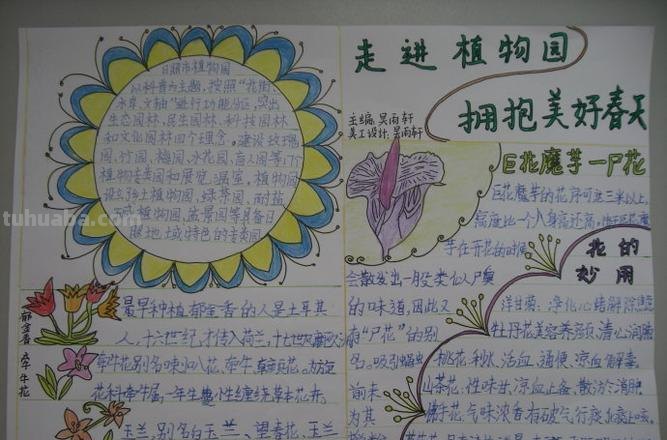 走进植物园
拥抱美好春天
主编:吴雨轩
美工设计:吴雨轩
日照市植物园
以科普为主题,按照“北街、
水草、文轴”进行功能分区,突出
生态园林、民生园林、科技园林
和文化园林四个理念。建设玫瑰
园、竹园、梅园、水花园、盲人园等17个
植物专类园和展览温室。植物园
设乡土植物园、绿茶园、耐盐
植物园、盆景园等具备日
照地域特色的专类园
巨花魔芋—尸花
巨花魔芋的花序可达三米以上,
高度比一个人身高还高,
芋在开花的时候
会散发出一股类似人尸臭
的味道,因此又
有“尸花”的别
名。吸引
前来
为其
花的
妙用
洋甘菊:净化心绪解除
牡丹花美容养颜,清心润肺
桃花利水、活血、通便、凉血解毒
山茶花,性味甘、凉血止备、散淤消肿
佛手花,气味浓香有破气行痰止咳
郁金香
牵牛花
最早种植郁金香的人是土耳其
人,十六世纪,才传入荷兰,十七世
牵牛花别名喇叭花、牵牛、朝颜花。为旋
花科牵牛属,一年生蔓性缠绕草本花卉。
玉兰,别名白玉兰、望春花、玉兰
tuhuaba.com